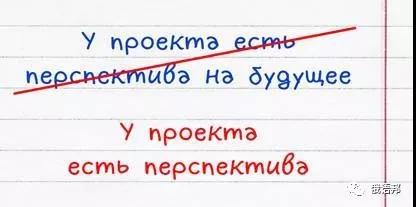 У проекта есть
перспектива на будущее
У проекта
есть перспектива
俄语邦